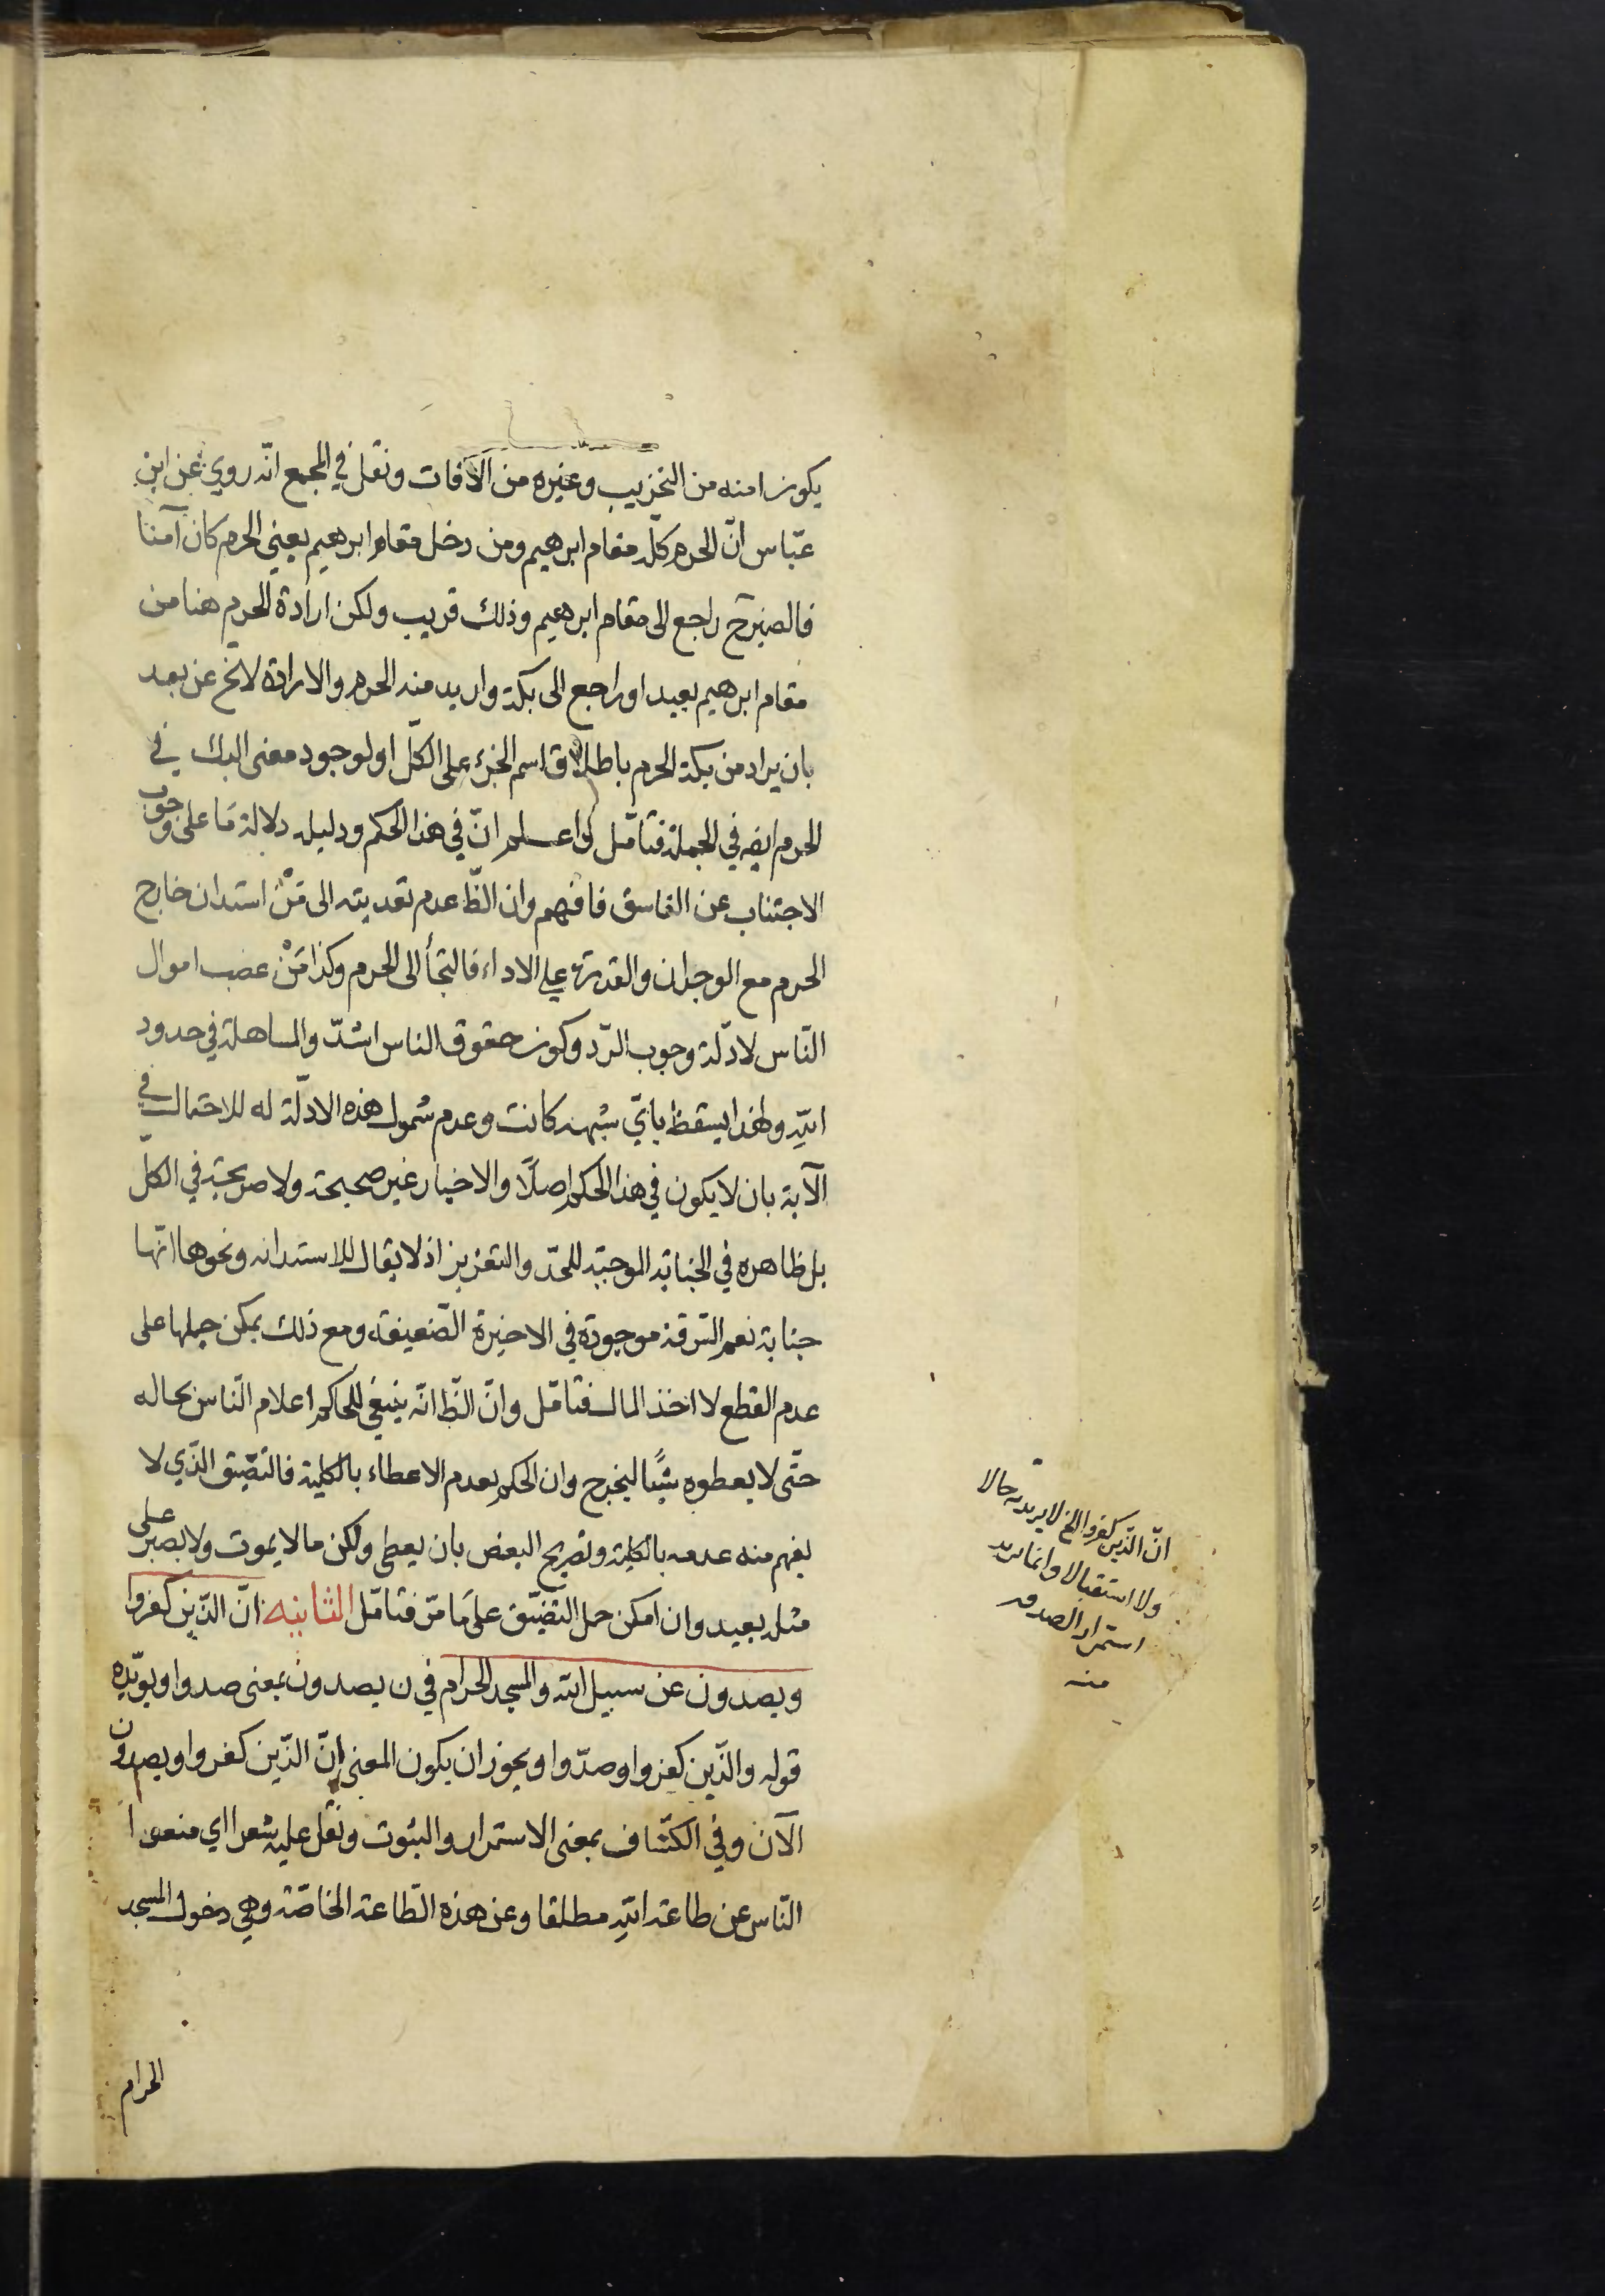 يكون امنه من التخريب وغيره من الآفات ونقل في المجمع انّه روي عن ابن
عبّاس انّ الحرم كلّه مقام ابرهيم ومن دخل مقام ابرهيم يعني الحرم كان آمنا
فالضميرح راجع الى مقام ابرهيم وذلك قريب ولكن ارادة الحرم هنا من
مقام ابرهيم بعيد او راجع الى بكة واريد منه الحرم والارادة لايخ عن بعد
بان يراد من بكة الحرم باطلاق اسم الجزء على الكلّ او لوجود معنى البك في
الحرم ايضه في الجملة فتأمّل واعلم انّ في هذا الحكم ودليله دلالة مّا على وجوب
الاجتناب عن الفاسق فافهم وان الظّ عدم تعديته الى مَنْ استدان خارج
الحرم مع الوجدان والقدرة على الاداء فالتجأ الى الحرم وكذا مَنْ غصب اموال
النّاس لادلّة وجوب الرّد وكون حقوق الناس اشدّ والمساهلة في حدود
الله ولهذا يسقط بايّ شبهة كانت وعدم شمول هذه الادلّة له للاحتمال في
الآية بان لا يكون في هذا الحكم اصلًا والاخبار غير صحيحة ولا صريحة في الكلّ
بل ظاهره في الجناية الموجبة للحدّ والتعزير اذ لا يقال للاستدانه ونحوها انّها
جناية نعم السّرقة موجودة في الاخيرة الضّعيفة ومع ذلك يمكن حملها على
عدم القطع لا اخذ المال فتأمّل وانّ الظّ انّه ينبغي للحاكم اعلام النّاس بحاله
حتّى لا يعطوه شيئًا ليخرج وان الحكم بعدم الاعطاء بالكلية فالتضّيق الذّي لا
يفهم منه عدمه بالكلية وتصريح البعض بان يعطى ولكن ما لا يموت ولا يصبر على
مثله بعيد وان امكن حمل التضيّق على مَا مرّ فتأمّل الثانيه انّ الذّين كفروا
ويصدون عن سبيل الله والمسجد الحرام في ن يصدون بمعنى صدوا ويويّده
قوله والذّين كفروا وصدّوا ويجوز ان يكون المعنى انّ الذّين كفروا ويصدون
الآن وفي الكشّاف بمعنى الاستمرار والثبوت ونقل عليه شعرا اي منعوا
النّاس عن طاعة الله مطلقا وعن هذه الطّاعة الخاصّة وهي دخول المسجد
الحرام
انّ الذّين كفروا الخ لا يريد به حالا
ولا استقبالا وانما يريد
استمرار الصد
منه